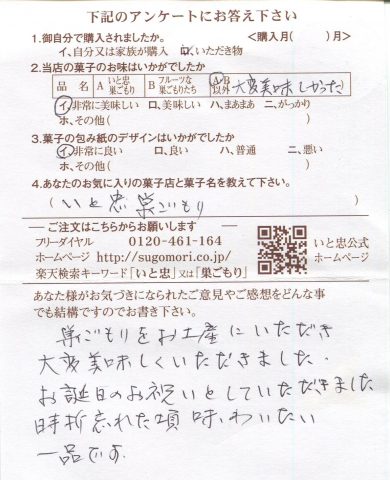 下記のアンケートにお答え下さい
1.御自分で購入されましたか。 <購入月( )月>
イ、自分又は家族が購入 ロ、いただき物
2.当店の菓子のお味はいかがでしたか
品 名 A いと忠巣ごもり B フルーツな巣ごもりたち A・B以外 大変美味しかった
イ、非常に美味しい ロ、美味しい ハ、まあまあ ニ、がっかり
ホ、その他( )
3.菓子の包み紙のデザインはいかがでしたか
イ、非常に良い ロ、良い ハ、普通 ニ、悪い
ホ、その他( )
4.あなたのお気に入りの菓子店と菓子名を教えて下さい。
( いと忠 巣ごもり )
ご注文はこちらからお願いします
フリーダイヤル 0120-461-164
ホームページ http://sugomori.co.jp/
楽天検索キーワード「いと忠」又は「巣ごもり」
いと忠公式
ホームページ
あなた様がお気づきになられたご意見やご感想をどんな事
でも結構ですのでお書き下さい。
巣ごもりをお土産にいただき
大変美味しくいただきました.
お誕日のお祝いとしていただきました
時折忘れた頃 味わいたい
一品です.